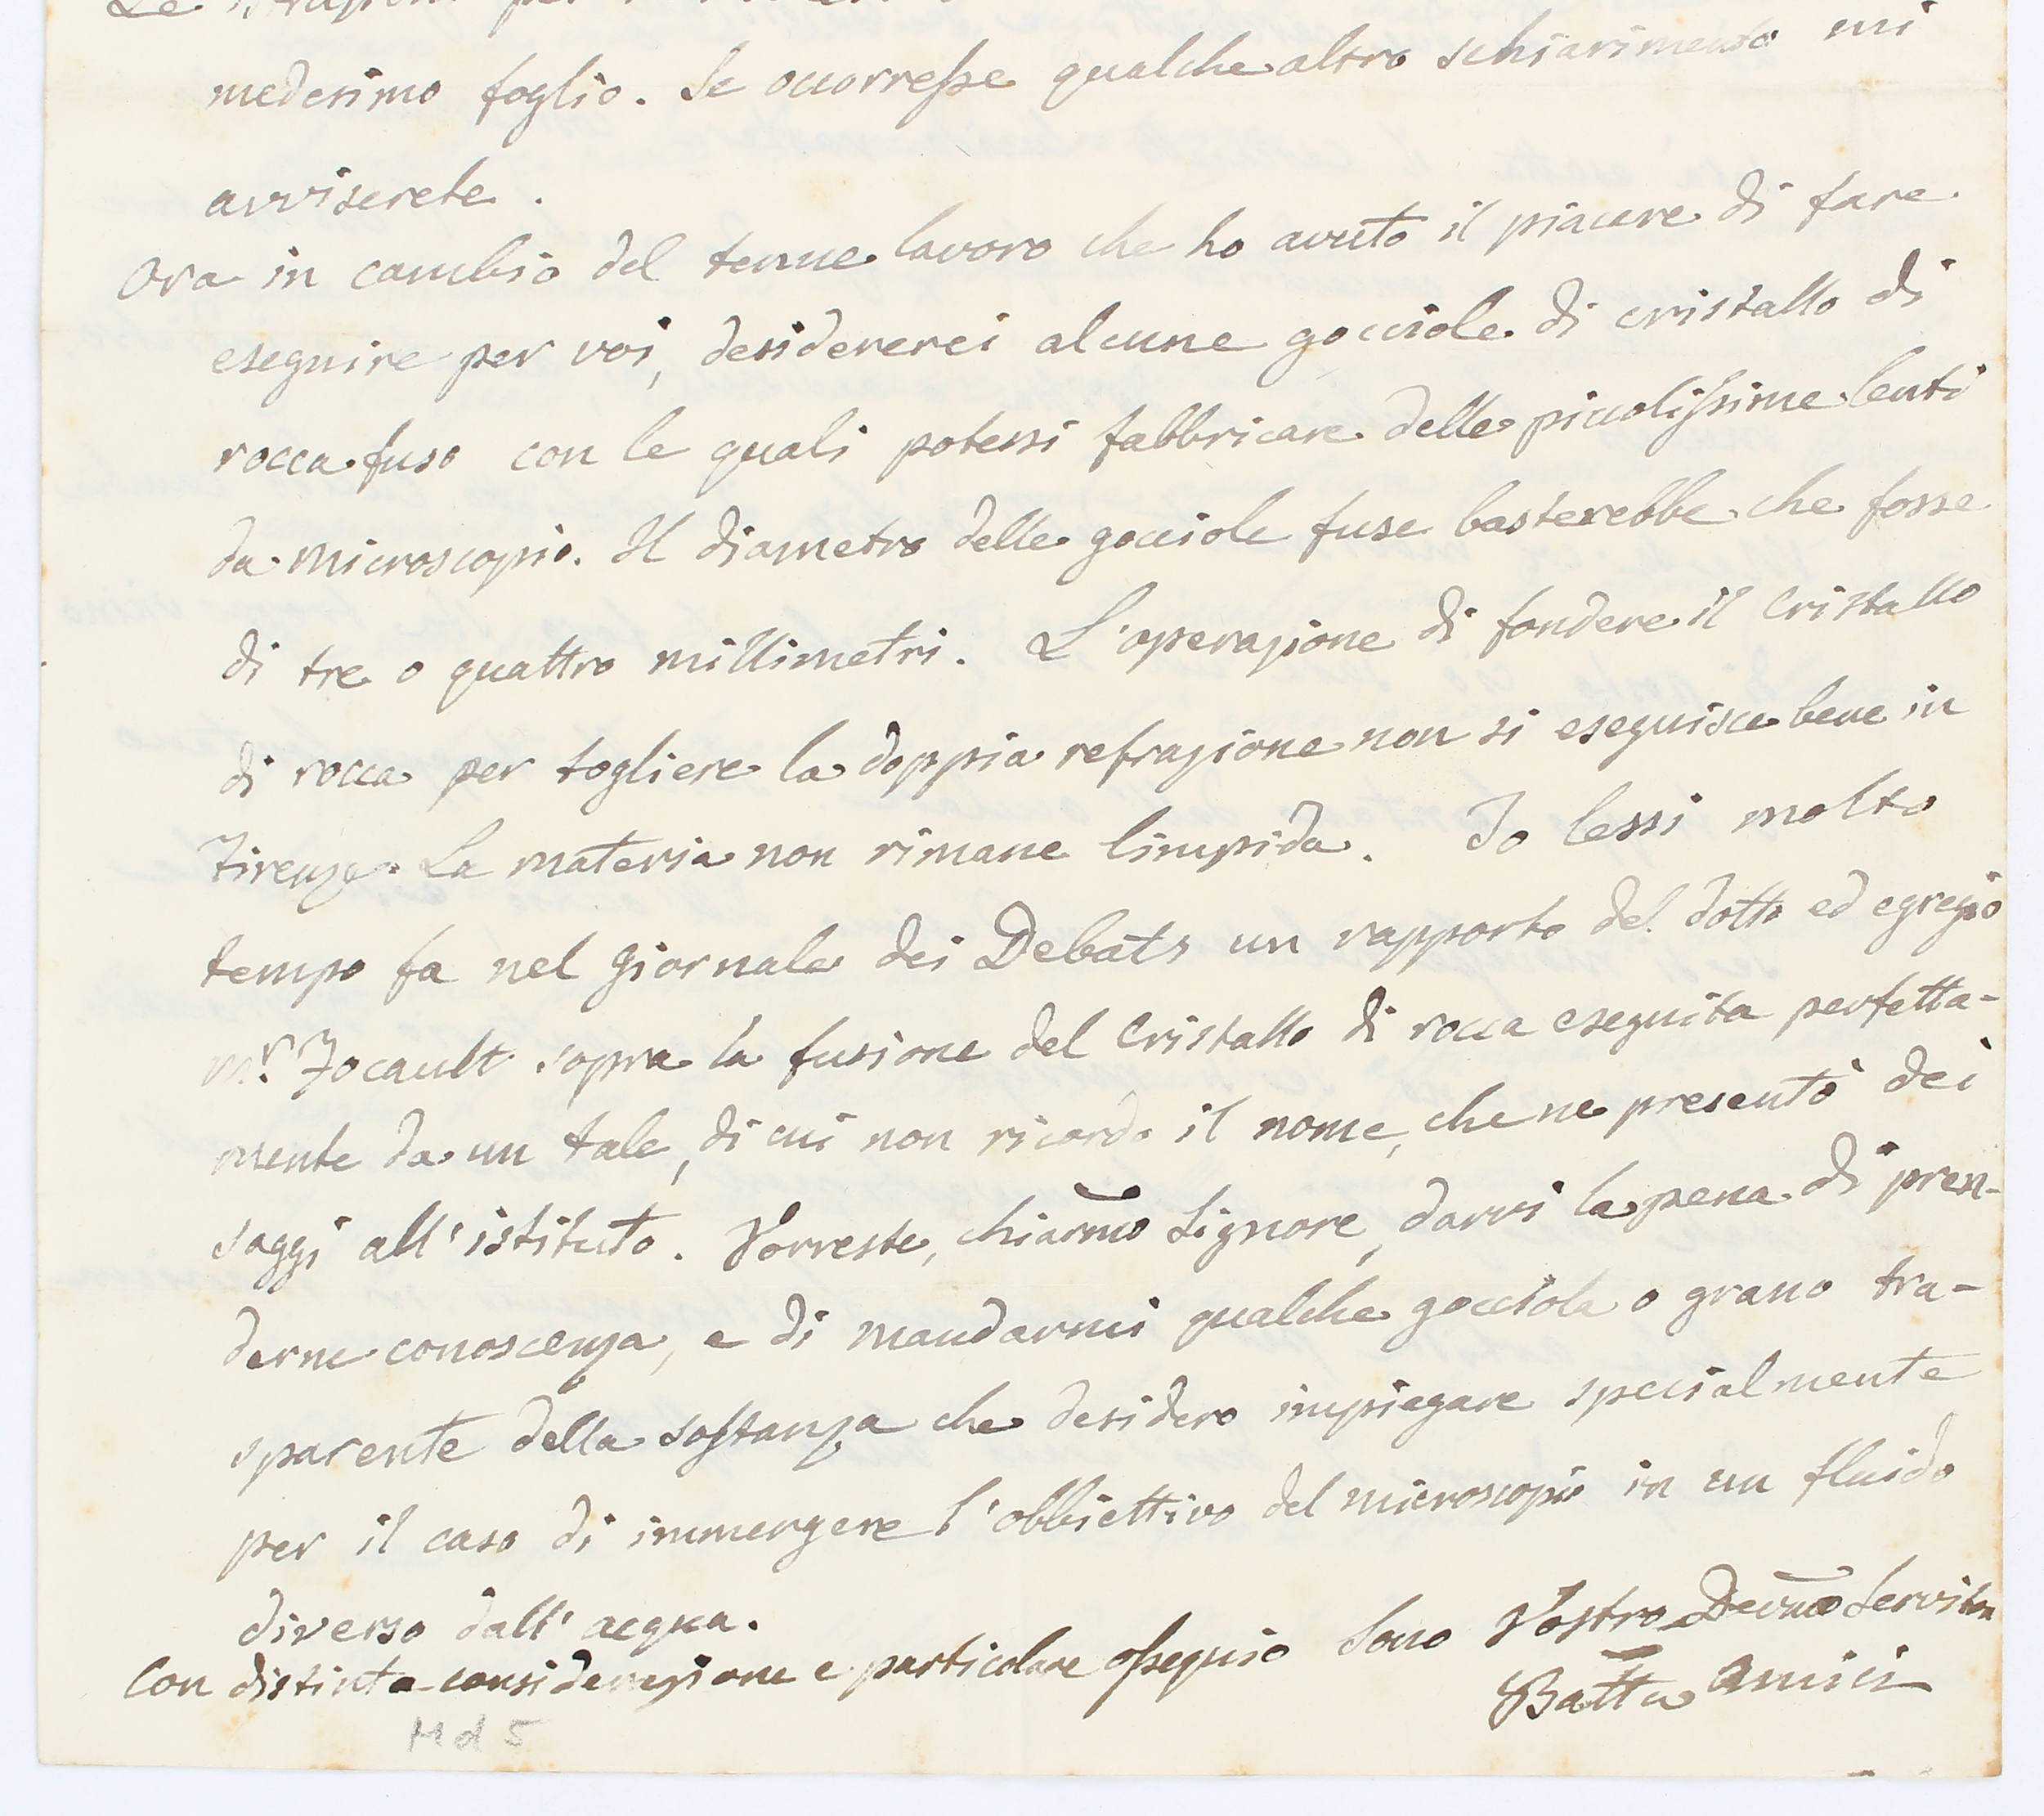 Le istruzioni per
medesimo foglio. Se occorresse qualche altro schiarimento mi
avviserete.
Ora in cambio del tenue lavoro che ho avuto il piacere di fare
eseguire per voi, desidererei alcune gocciole di cristallo di
rocca fuso con le quali potessi fabbricare delle piccolissime lenti
da microscopio. Il diametro delle gocciole fuse basterebbe che fosse
di tre o quattro millimetri. L'operazione di fondere il cristallo
di rocca per togliere la doppia refrazione non si eseguisce bene in
Firenze. La materia non rimane limpida. Io lessi molto
tempo fa nel giornale dei Debats un rapporto del dotto ed egregio
Mr. Focault sopra la fusione del Cristallo di rocca eseguita perfetta-
mente da un tale, di cui non ricordo il nome, che ne presentò dei
saggi all'istituto. Vorreste, chiarmo Signore, darvi la pena di pren-
derne conoscenza, e di mandarmi qualche gocciola o grano tra-
sparente della sostanza che desidero impiegare specialmente
per il caso di immergere l'obbiettivo del microscopio in un fluido
diverso dall'acqua.
Con distinta considerazione e particolare ossequio Sono Vostro Devmo Servitor
GBatta Amici
Md5